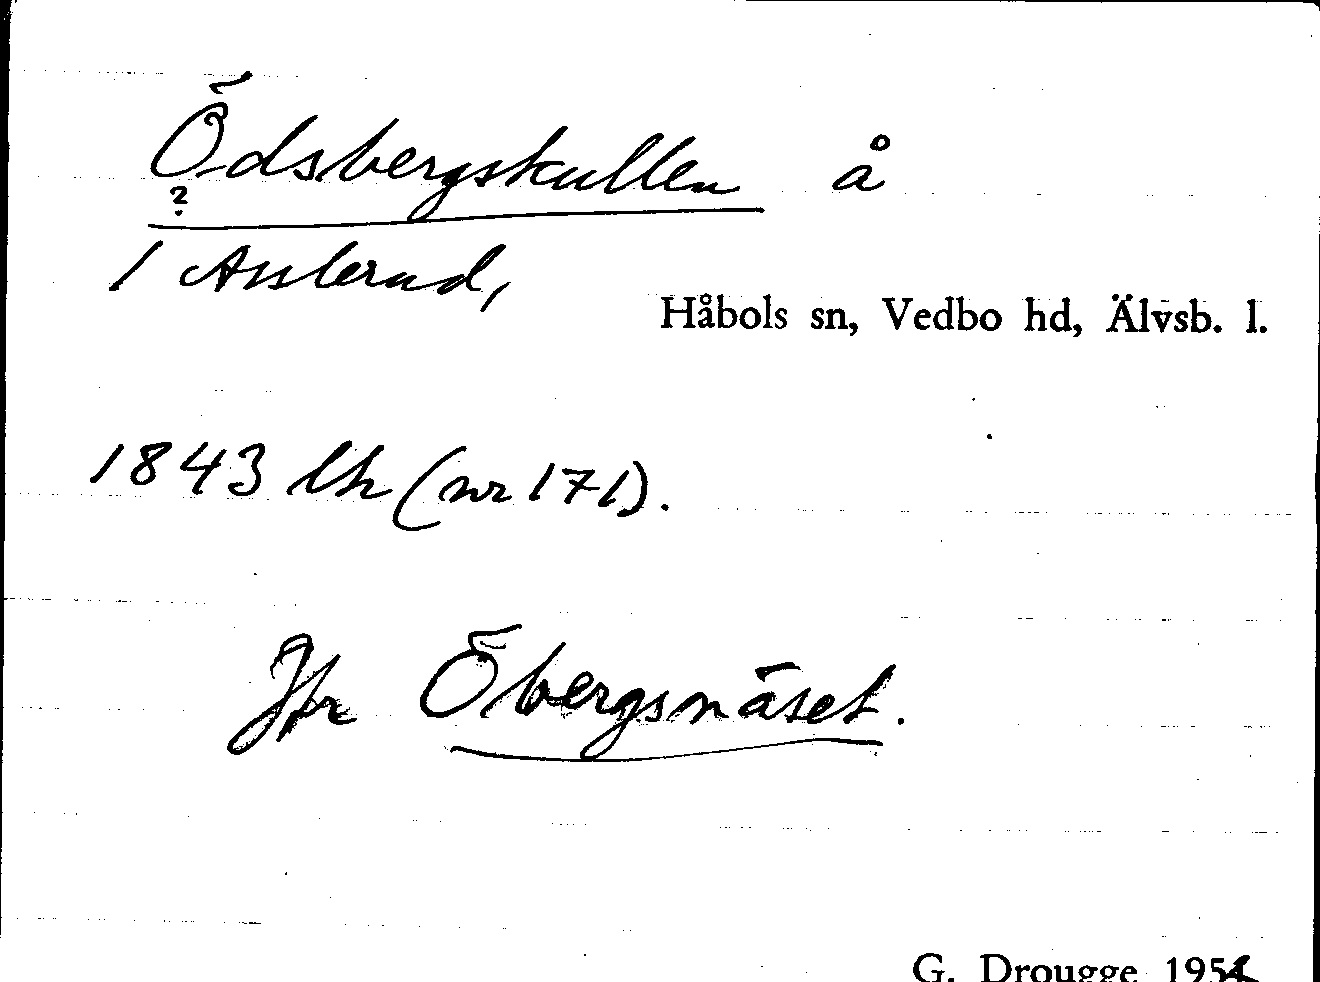 Ödsbergskullen å
?
1 Asslerud,
Håbols sn, Vedbo hd, Älvsb. l.
1843 lh (nr 171).
Jfr Öbergsnäset.
G. Drougge 195